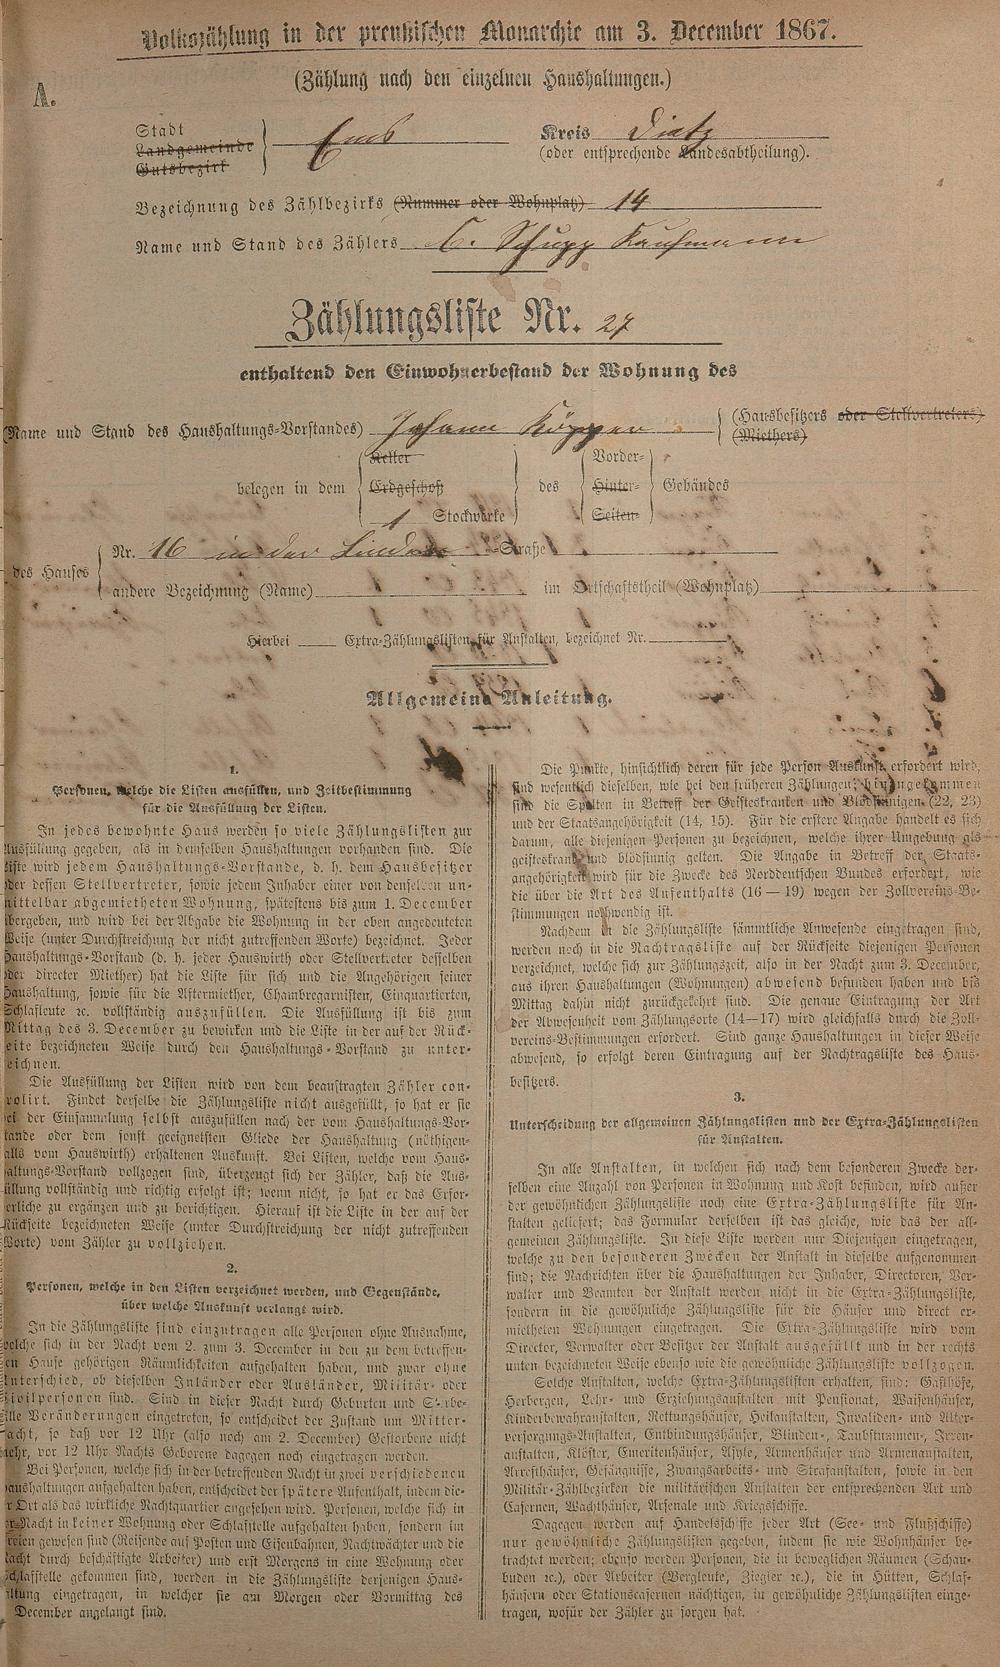 Volkszählung in der preußischen Monarchie am 3. December 1867.
(Zählung nach den einzelnen Haushaltungen.)
A.
Stadt
Landgemeinde
Gutsbezirk
Ems
Kreis Dietz
(oder entsprechende Landesabtheilung).
Bezeichnung des Zählbezirks (Nummer oder Wohnplatz) 14
Name und Stand des Zählers C. Schupp Kaufmann
Zählungsliste Nr. 27
enthaltend den Einwohnerbestand der Wohnung des
(Name und Stand des Haushaltungs-Vorstandes) Johann
(Hausbesitzers oder Stellvertreters)
(Miethers)
belegen in dem
Keller
Erdgeschoß
1 Stockwerke
des
Vorder-
Hinter-
Seiten-
Gebäudes
des Hauses
Nr. 16 in der -Straße
andere Bezeichnung (Name) im Ortschaftstheil (Wohnplatz)
Hierbei Extra-Zählungslisten für Anstalten, bezeichnet Nr.
Allgemeine Anleitung.
1.
Personen, welche die Listen ausfüllen, und Zeitbestimmung
für die Ausfüllung der Listen.
In jedes bewohnte Haus werden so viele Zählungslisten zur
Ausfüllung gegeben, als in demselben Haushaltungen vorhanden sind. Die
Liste wird jedem Haushaltungs-Vorstande, d. h. dem Hausbesitzer
oder dessen Stellvertreter, sowie jedem Inhaber einer von denselben un-
mittelbar abgemietheten Wohnung, spätestens bis zum 1. December
übergeben, und wird bei der Abgabe die Wohnung in der oben angedeuteten
Weise (unter Durchstreichung der nicht zutreffenden Worte) bezeichnet. Jeder
Haushaltungs-Vorstand (d. h. jeder Hauswirth oder Stellvertreter desselben
oder directer Miether) hat die Liste für sich und die Angehörigen seiner
Haushaltung, sowie für die Aftermiether, Chambregarnisten, Einquartierten,
Schlafleute ꝛc. vollständig auszufüllen. Die Ausfüllung ist bis zum
Mittag des 3. December zu bewirken und die Liste in der auf der Rück-
seite bezeichneten Weise durch den Haushaltungs-Vorstand zu unter-
zeichnen.
Die Ausfüllung der Listen wird von dem beauftragten Zähler con-
trolirt. Findet derselbe die Zählungsliste nicht ausgefüllt, so hat er sie
bei der Einsammlung selbst auszufüllen nach der vom Haushaltungs-Vor-
stande oder dem sonst geeignetsten Gliede der Haushaltung (nöthigen-
falls vom Hauswirth) erhaltenen Auskunft. Bei Listen, welche vom Haus-
haltungs-Vorstand vollzogen sind, überzeugt sich der Zähler, daß die Aus-
füllung vollständig und richtig erfolgt ist; wenn nicht, so hat er das Erfor-
derliche zu ergänzen und zu berichtigen. Hierauf ist die Liste in der auf der
Rückseite bezeichneten Weise (unter Durchstreichung der nicht zutreffenden
Worte) vom Zähler zu vollziehen.
2.
Personen, welche in den Listen verzeichnet werden, und Gegenstände,
über welche Auskunft verlangt wird.
In die Zählungsliste sind einzutragen alle Personen ohne Ausnahme,
welche sich in der Nacht vom 2. zum 3. December in den zu dem betreffen-
den Hause gehörigen Räumlichkeiten aufgehalten haben, und zwar ohne
Unterschied, ob dieselben Inländer oder Ausländer, Militär- oder
Civilpersonen sind. Sind in dieser Nacht durch Geburten und Sterbe-
fälle Veränderungen eingetreten, so entscheidet der Zustand um Mitter-
nacht, so daß vor 12 Uhr (also noch am 2. December) Gestorbene nicht
mehr, vor 12 Uhr Nachts Geborene dagegen noch eingetragen werden.
Bei Personen, welche sich in der betreffenden Nacht in zwei verschiedenen
Haushaltungen aufgehalten haben, entscheidet der spätere Aufenthalt, indem die-
ser Ort als das wirkliche Nachtquartier angesehen wird. Personen, welche sich in
der Nacht in keiner Wohnung oder Schlafstelle aufgehalten haben, sondern im
Freien gewesen sind (Reisende auf Posten und Eisenbahnen, Nachtwächter und die
Nacht durch beschäftigte Arbeiter) und erst Morgens in eine Wohnung oder
Schlafstelle gekommen sind, werden in die Zählungsliste derjenigen Haus-
haltung eingetragen, in welcher sie am Morgen oder Vormittag des
December angelangt sind.
Die Punkte, hinsichtlich deren für jede Person Auskunft erfordert wird,
sind wesentlich dieselben, wie bei den früheren Zählungen; hinzugekommen
sind die Spalten in Betreff der Geisteskranken und Blödsinnigen (22, 23)
und der Staatsangehörigkeit (14, 15). Für die erstere Angabe handelt es sich
darum, alle diejenigen Personen zu bezeichnen, welche ihrer Umgebung als
geisteskrank und blödsinnig gelten. Die Angabe in Betreff der Staats-
angehörigkeit wird für die Zwecke des Norddeutschen Bundes erfordert, wie
die über die Art des Aufenthalts (16—19) wegen der Zollvereins-Be-
stimmungen nothwendig ist.
Nachdem in die Zählungsliste sämmtliche Anwesende eingetragen sind,
werden noch in die Nachtragsliste auf der Rückseite diejenigen Personen
verzeichnet, welche sich zur Zählungszeit, also in der Nacht zum 3. December,
aus ihren Haushaltungen (Wohnungen) abwesend befunden haben und bis
Mittag dahin nicht zurückgekehrt sind. Die genaue Eintragung der Art
der Abwesenheit vom Zählungsorte (14—17) wird gleichfalls durch die Zoll-
vereins-Bestimmungen erfordert. Sind ganze Haushaltungen in dieser Weise
abwesend, so erfolgt deren Eintragung auf der Nachtragsliste des Haus-
besitzers.
3.
Unterscheidung der allgemeinen Zählungslisten und der Extra-Zählungslisten
für Anstalten.
In alle Anstalten, in welchen sich nach dem besonderen Zwecke der-
selben eine Anzahl von Personen in Wohnung und Kost befinden, wird außer
der gewöhnlichen Zählungsliste noch eine Extra-Zählungsliste für An-
stalten geliefert; das Formular derselben ist das gleiche, wie das der all-
gemeinen Zählungsliste. In diese Liste werden nur Diejenigen eingetragen,
welche zu den besonderen Zwecken der Anstalt in dieselbe aufgenommen
sind; die Nachrichten über die Haushaltungen der Inhaber, Directoren, Ver-
walter und Beamten der Anstalt werden nicht in die Extra-Zählungsliste,
sondern in die gewöhnliche Zählungsliste für die Häuser und direct er-
mietheten Wohnungen eingetragen. Die Extra-Zählungsliste wird vom
Director, Verwalter oder Besitzer der Anstalt ausgefüllt und in der rechts
unten bezeichneten Weise ebenso wie die gewöhnliche Zählungsliste vollzogen.
Solche Anstalten, welche Extra-Zählungslisten erhalten, sind: Gasthöfe,
Herbergen, Lehr- und Erziehungsanstalten mit Pensionat, Waisenhäuser,
Kinderbewahranstalten, Rettungshäuser, Heilanstalten, Invaliden- und Alter-
versorgungs-Anstalten, Entbindungshäuser, Blinden-, Taubstummen-, Irren-
anstalten, Klöster, Emeritenhäuser, Asyle, Armenhäuser und Armenanstalten,
Arresthäuser, Gefängnisse, Zwangsarbeits- und Strafanstalten, sowie in den
Militär-Zählbezirken die militärischen Anstalten der entsprechenden Art und
Casernen, Wachthäuser, Arsenale und Kriegsschiffe.
Dagegen werden auf Handelsschiffe jeder Art (See- und Flußschiffe)
nur gewöhnliche Zählungslisten gegeben, indem sie wie Wohnhäuser be-
trachtet werden; ebenso werden Personen, die in beweglichen Räumen (Schau-
buden ꝛc.), oder Arbeiter (Bergleute, Ziegler ꝛc.), die in Hütten, Schlaf-
häusern oder Stationscasernen nächtigen, in gewöhnliche Zählungslisten einge-
tragen, wofür der Zähler zu sorgen hat.